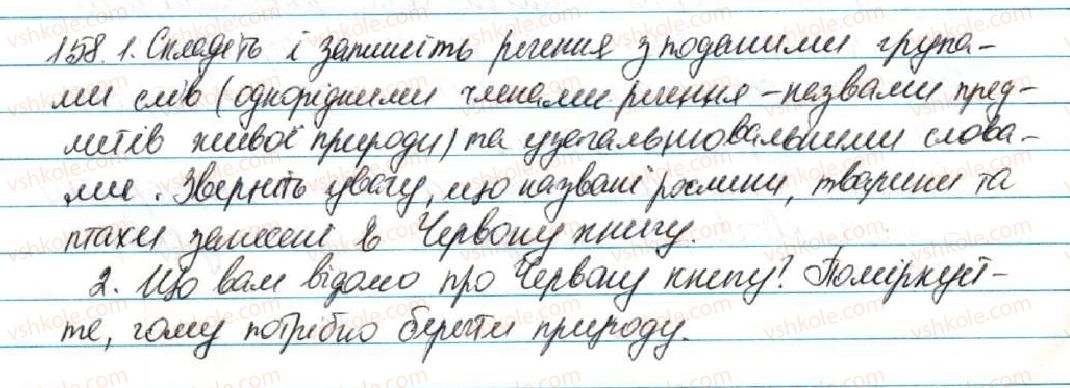 158. 1. Складіть і запишіть речення з поданими група-
ми слів (однорідними членами речення - назвами пред-
метів живої природи) та узагальнювальними слова-
ми. Зверніть увагу, що названі рослини, тварини та
птахи занесені в Червону книгу.
2. Що вам відомо про Червону книгу? Поміркуй-
те, чому потрібно берегти природу.